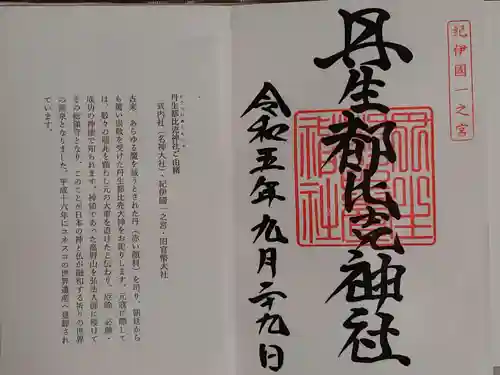 紀伊國一之宮
丹生都比売神社
令和五年九月二十九日
丹生都比売神社ご由緒
式内社(名神大社)・紀伊國一之宮・旧官幣大社
古来、あらゆる魔を祓うとされた丹(赤い顔料)を司り、朝廷から
も篤い崇敬を受けた丹生都比売大神をお祀りします。元寇に際して
は、数々の
元の大軍を退けたと伝わり、厄除
成功の神徳で知られます。神領であった高野山を弘法大師に授けて
その総鎮守となり、このことが日本の神と仏が融和する祈りの世界
の源泉となりました。平成十六年にユネスコの世界遺産へ登録され
ています。